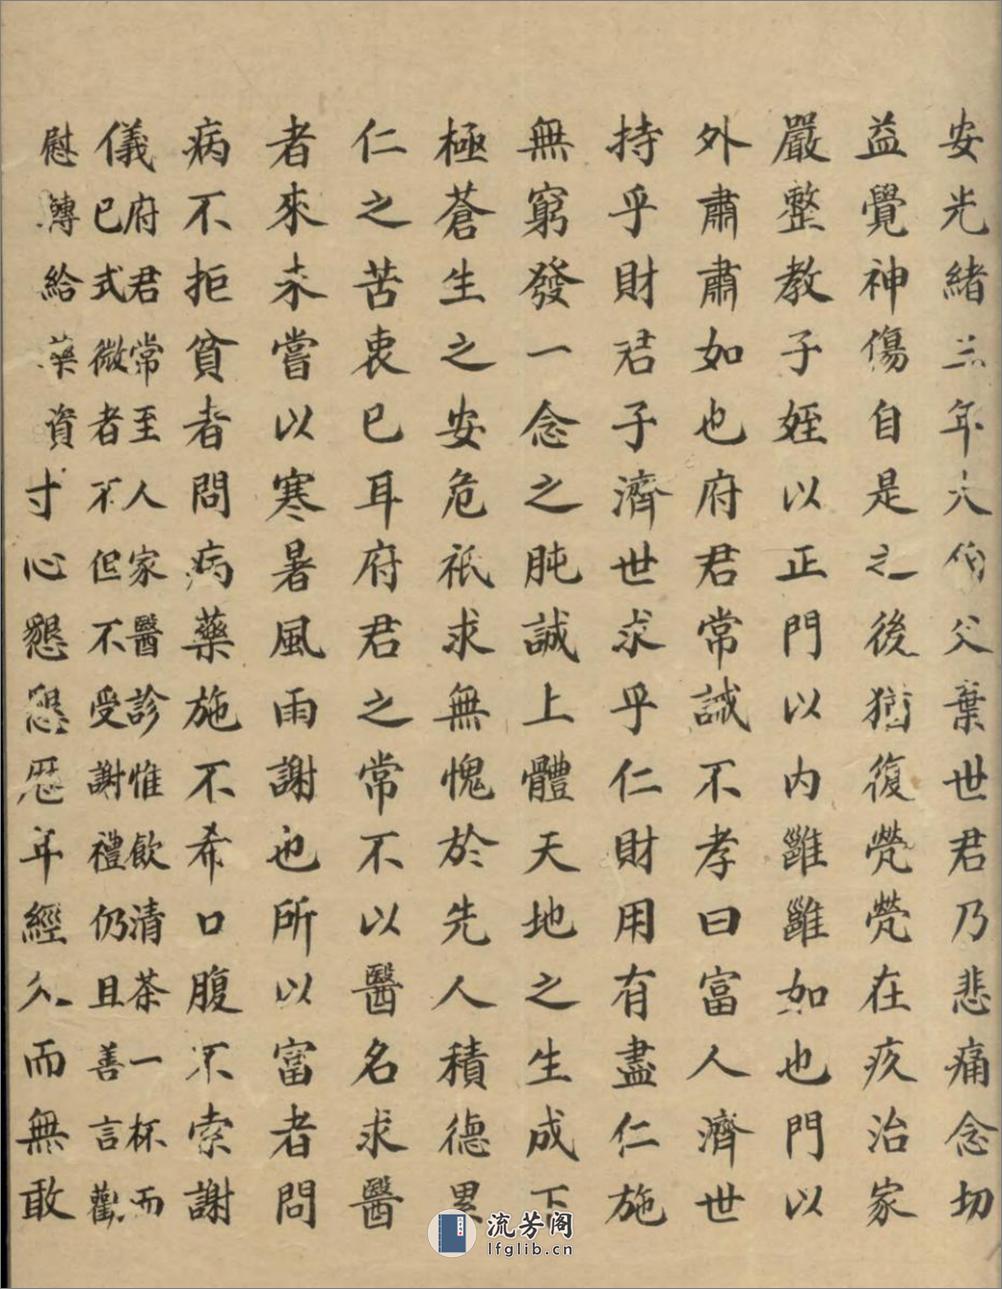 安光緒三年大伯父棄世君乃悲痛念切
益覺神傷自是之後猶復煢煢在疚治家
嚴整教子姪以正門以内雝雝如也門以
外肅肅如也府君常誡不孝曰富人濟世
持乎財君子濟世求乎仁財用有盡仁施
無窮發一念之肫誠上體天地之生成下
極蒼生之安危祇求無愧於先人積德累
仁之苦衷已耳府君之常不以醫名求醫
者來未嘗以寒暑風雨謝也所以富者問
病不拒貧者問病藥施不希口腹不索謝
儀府君常至人家醫診惟飲清茶一杯而
已式微者不但不受謝禮仍且善言勸
慰轉給藥資寸心懇懇歷年經久而無敢
流芳阁
lfglib.cn